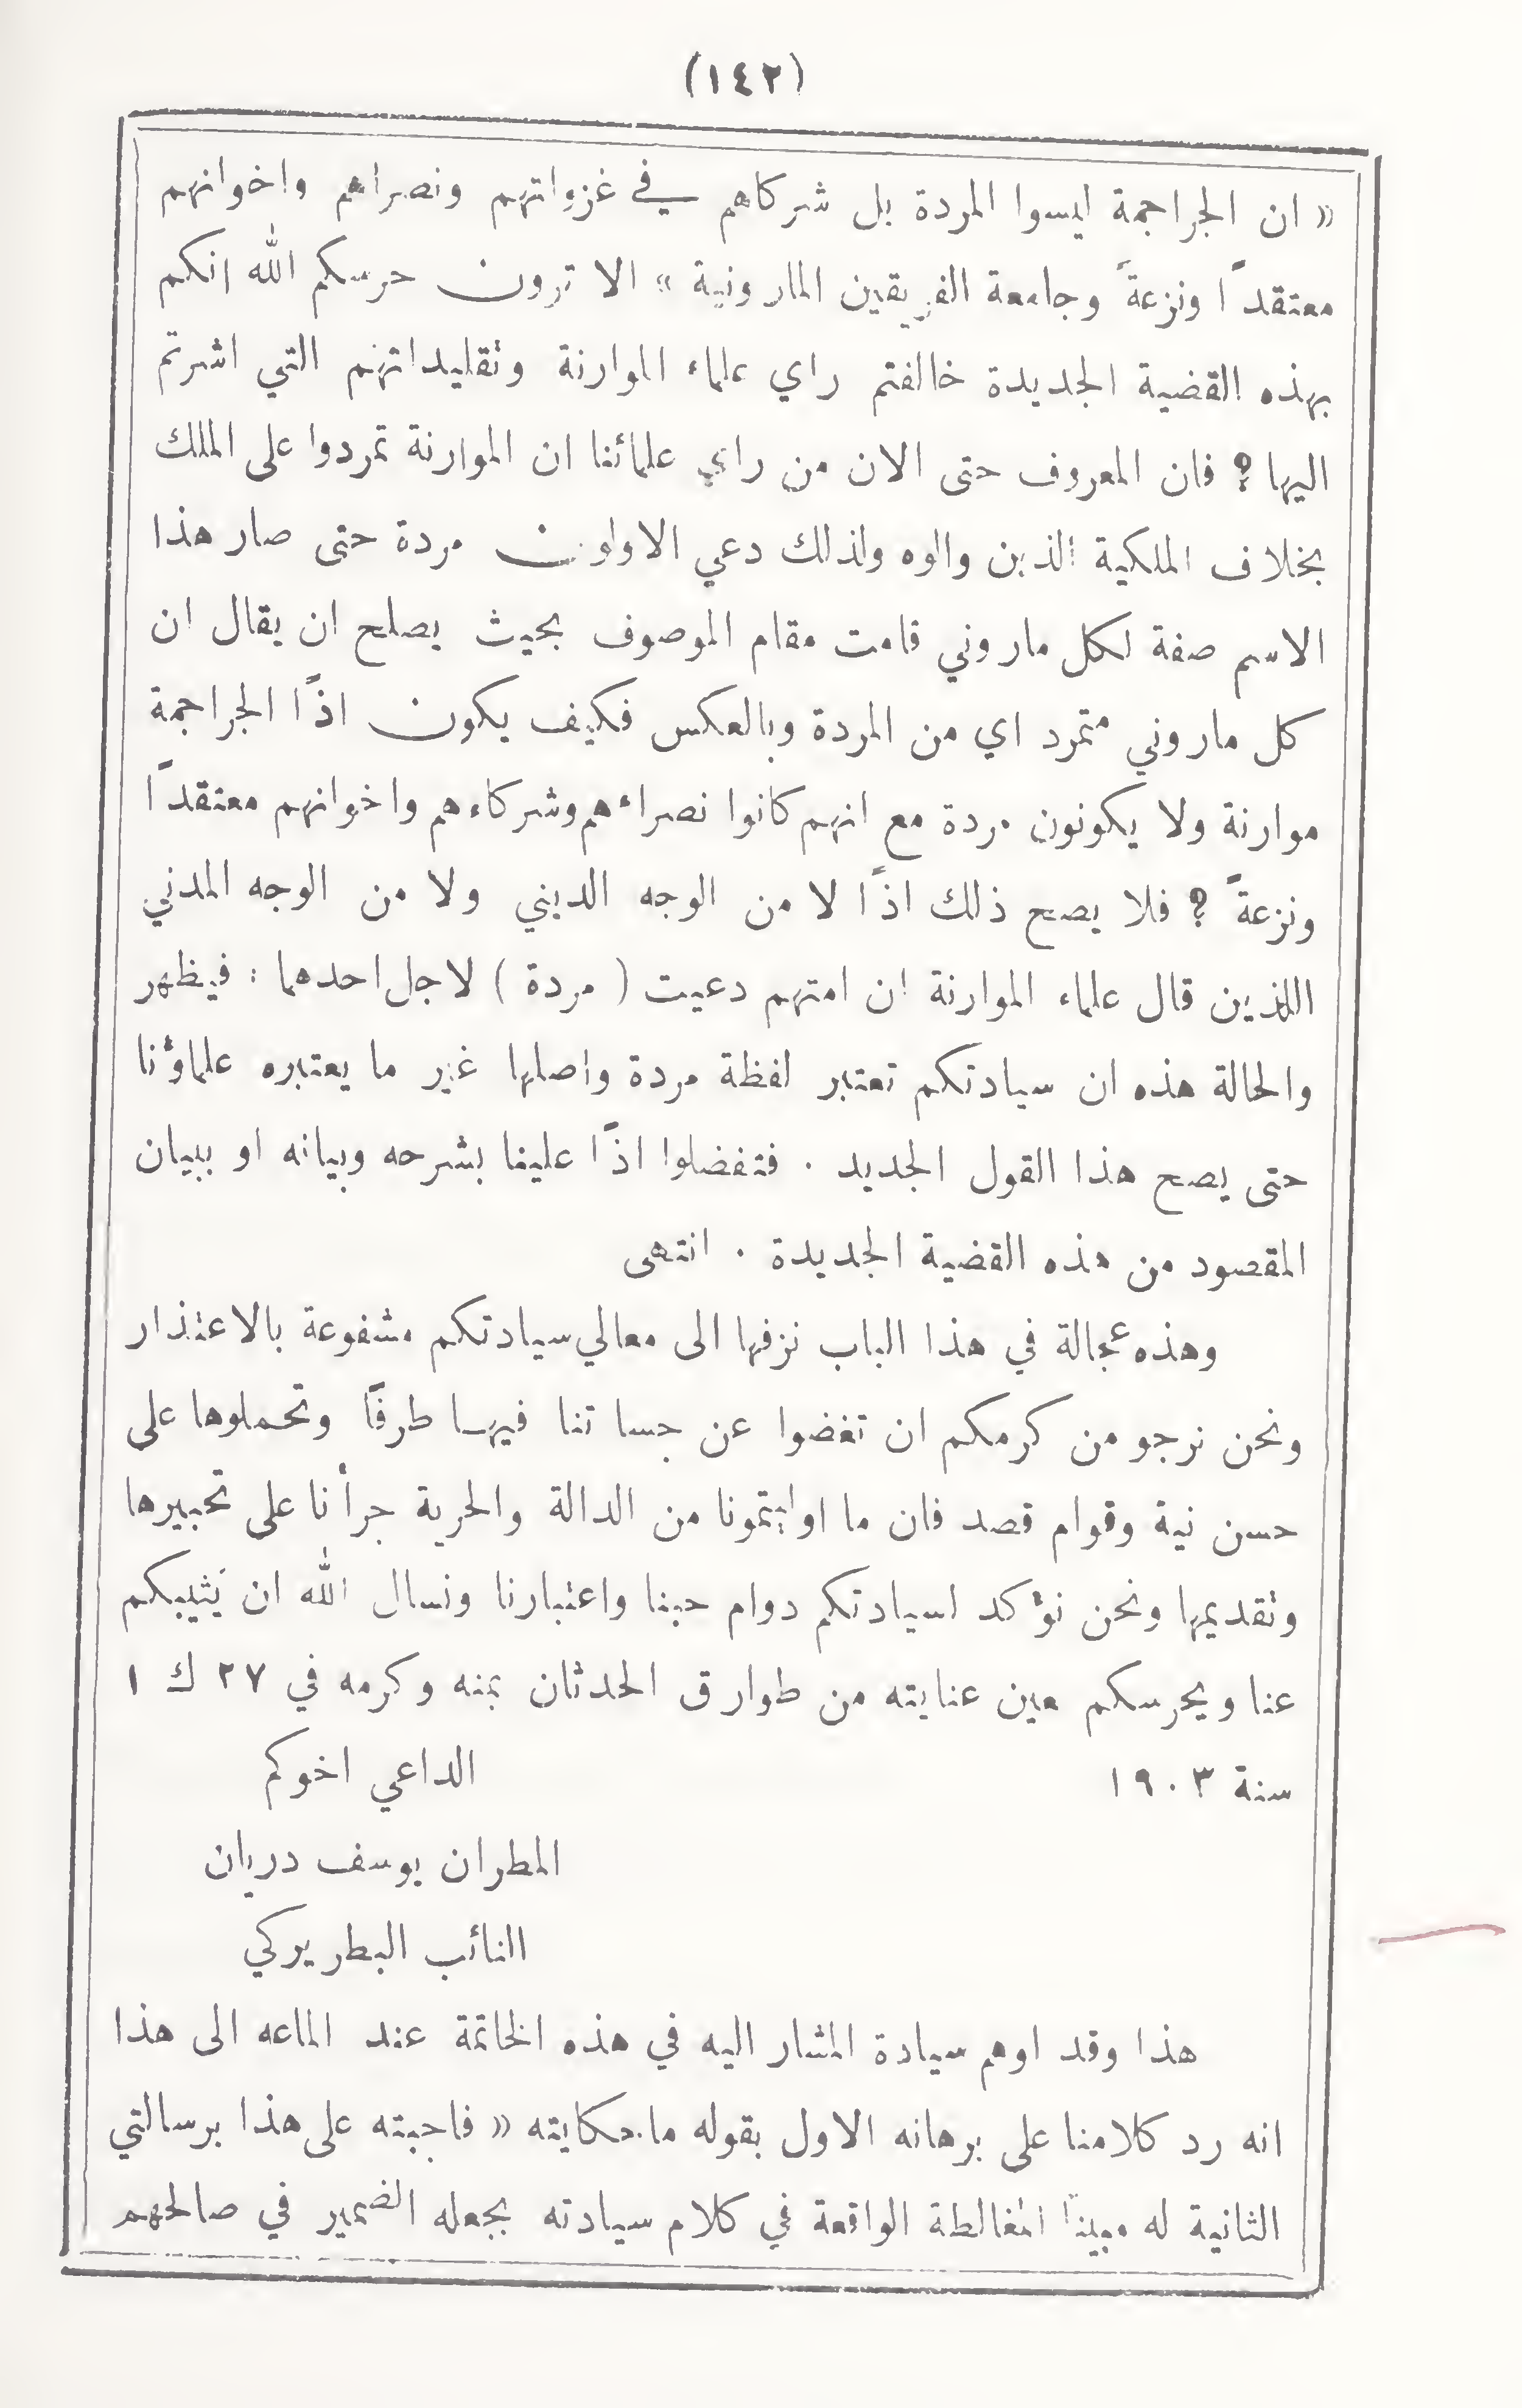 (١٤٢)
« ان الجراجمة ليسوا المردة بل شركاهم في غزواتهم ونصراهم واخوانهم
معتقدًا ونزعةً وجامعة الفريقين المارونية » الا ترون حرسكم الله انكم
بهذه القضية الجديدة خالفتم راي علماء الموارنة وتقليداتهم التي اشرتم
اليها ؟ فان المعروف حتى الان من راي علمائنا ان الموارنة تمردوا على الملك
بخلاف الملكية الذين والوه ولذلك دعي الاولون مردة حتى صار هذا
الاسم صفة لكل ماروني قامت مقام الموصوف بحيث يصلح ان يقال ان
كل ماروني متمرد اي من المردة وبالعكس فكيف يكون اذًا الجراجمة
موارنة ولا يكونون مردة مع انهم كانوا نصراءهم وشركاءهم واخوانهم معتقدًا
ونزعةً ؟ فلا يصح ذلك اذًا لا من الوجه الديني ولا من الوجه المدني
اللذين قال علماء الموارنة ان امتهم دعيت ( مردة ) لاجل احدهما : فيظهر
والحالة هذه ان سيادتكم تعتبر لفظة مردة واصلها غير ما يعتبره علماؤنا
حتى يصح هذا القول الجديد . فتفضلوا اذًا علينا بشرحه وبيانه او ببيان
المقصود من هذه القضية الجديدة . انتهى
وهذه عجالة في هذا الباب نزفها الى معالي سيادتكم مشفوعة بالاعتذار
ونحن نرجو من كرمكم ان تغضوا عن جساتنا فيها طرفًا وتحملوها على
حسن نية وقوام قصد فان ما اوليتمونا من الدالة والحرية جرأنا على تحبيرها
وتقديمها ونحن نؤكد لسيادتكم دوام حبنا واعتبارنا ونسال الله ان يثيبكم
عنا ويحرسكم بعين عنايته من طوارق الحدثان بمنه وكرمه في ٢٧ ك ١
سنة ١٩٠٣ الداعي اخوكم
المطران يوسف دريان
النائب البطريركي
هذا وقد اوهم سيادة المشار اليه في هذه الخاتمة عند الماعه الى هذا
انه رد كلامنا على برهانه الاول بقوله ما حكايته « فاجبته على هذا برسالتي
الثانية له مبينًا المغالطة الواقعة في كلام سيادته بجعله الضمير في صالحهم